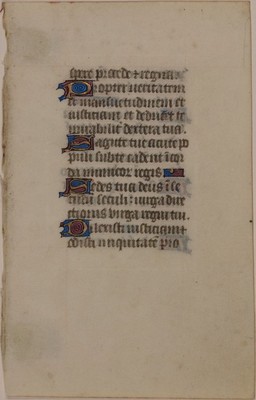 spere procede et regna
Propter veritatem
et mansuetudinem et
iusticiam et deducet te
mirabilit dextera tua.
Sagitte tue acute po
puli subte cadent i cor
da inimicor regis
Sedes tua deus i se
culu seculi: uirga dire
ctionis uirga regni tui.
Dilexisti iusticiam et
odisti iniquitate pro